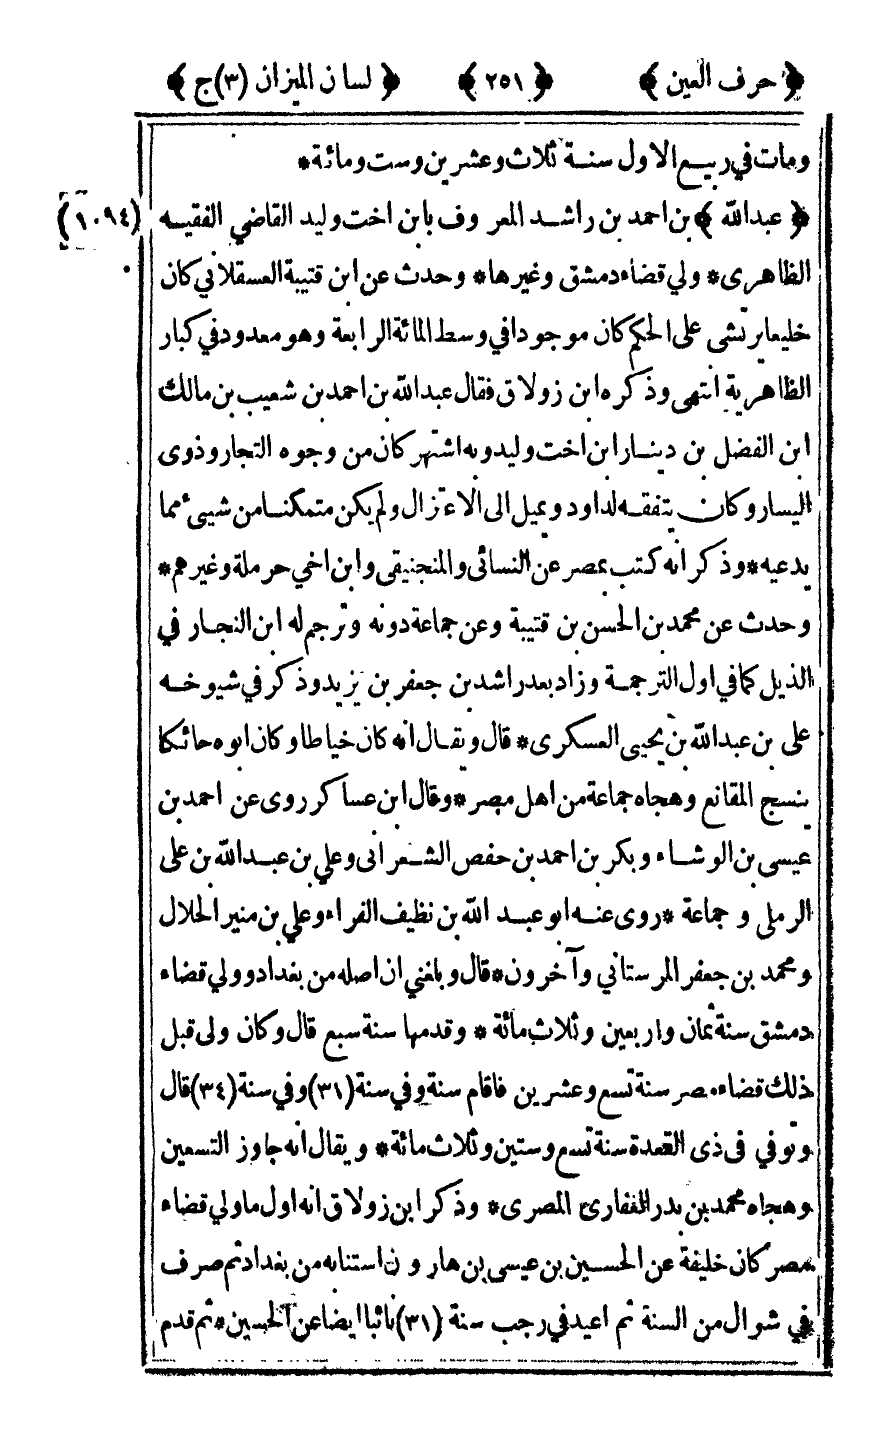 ﴿ حرف العين ﴾ ﴿ ٢٥١ ﴾ ﴿ لسان الميزان (٣)ج ﴾
ومات في ربيع الاول سنة ثلاث وعشرين وست ومائة*
﴿ عبدالله ﴾ بن احمد بن راشد المعروف بابن اخت وليد القاضي الفقيه (١٠٩٤)
الظاهرى* ولي قضاء دمشق وغيرها* وحدث عن ابن قتيبة العسقلاني كان
خليعا يرتشى على الحكم كان موجودا في وسط المائة الرابعة وهو معدود في كبار
الظاهرية انتهى وذكره ابن زولاق فقال عبدالله بن احمد بن شعيب بن مالك
ابن الفضل بن دينار ابن اخت وليد وبه اشتهر كان من وجوه التجار وذوى
اليسار وكان يتفقه لداود ويميل الى الاعتزال ولم يكن متمكنا من شيئ مما
يدعيه* وذكر انه كتب بمصر عن النسائى والمنجنيقى وابن اخي حرملة وغيرهم*
وحدث عن محمد بن الحسن بن قتيبة وعن جماعة دونه وترجم له ابن النجار في
الذيل كما في اول الترجمة وزاد بعد راشد بن جعفر بن يزيد وذكر في شيوخه
على بن عبدالله بن يحيى العسكرى* قال ويقال انه كان خياطا وكان ابوه حائكا
ينسج المقانع وهجاه جماعة من اهل مصر* وقال ابن عساكر روى عن احمد بن
عيسى بن الوشاء وبكر بن احمد بن حفص الشعرانى وعلي بن عبدالله بن على
الرملى و جماعة *روى عنه ابو عبد الله بن نظيف الفراء وعلي بن منير الخلال
ومحمد بن جعفر المرستاني وآخرون* قال وبلغني ان اصله من بغداد وولي قضاء
دمشق سنة ثمان واربعين وثلاث مائة * وقدمها سنة سبع قال وكان ولى قبل
ذلك قضاء مصر سنة تسع وعشرين فاقام سنة وفي سنة (٣١) وفي سنة (٣٤) قال
وتوفي فى ذى القعدة سنة تسع وستين وثلاث مائة* ويقال انه جاوز التسعين
وهجاه محمد بن بدر الغفارى المصرى* وذكر ابن زولاق انه اول ما ولي قضاء
مصر كان خليفة عن الحسين بن عيسى بن هارون استنابه من بغداد ثم صرف
في شوال من السنة ثم اعيد في رجب سنة (٣١) نائبا ايضا عن الحسين* ثم قدم